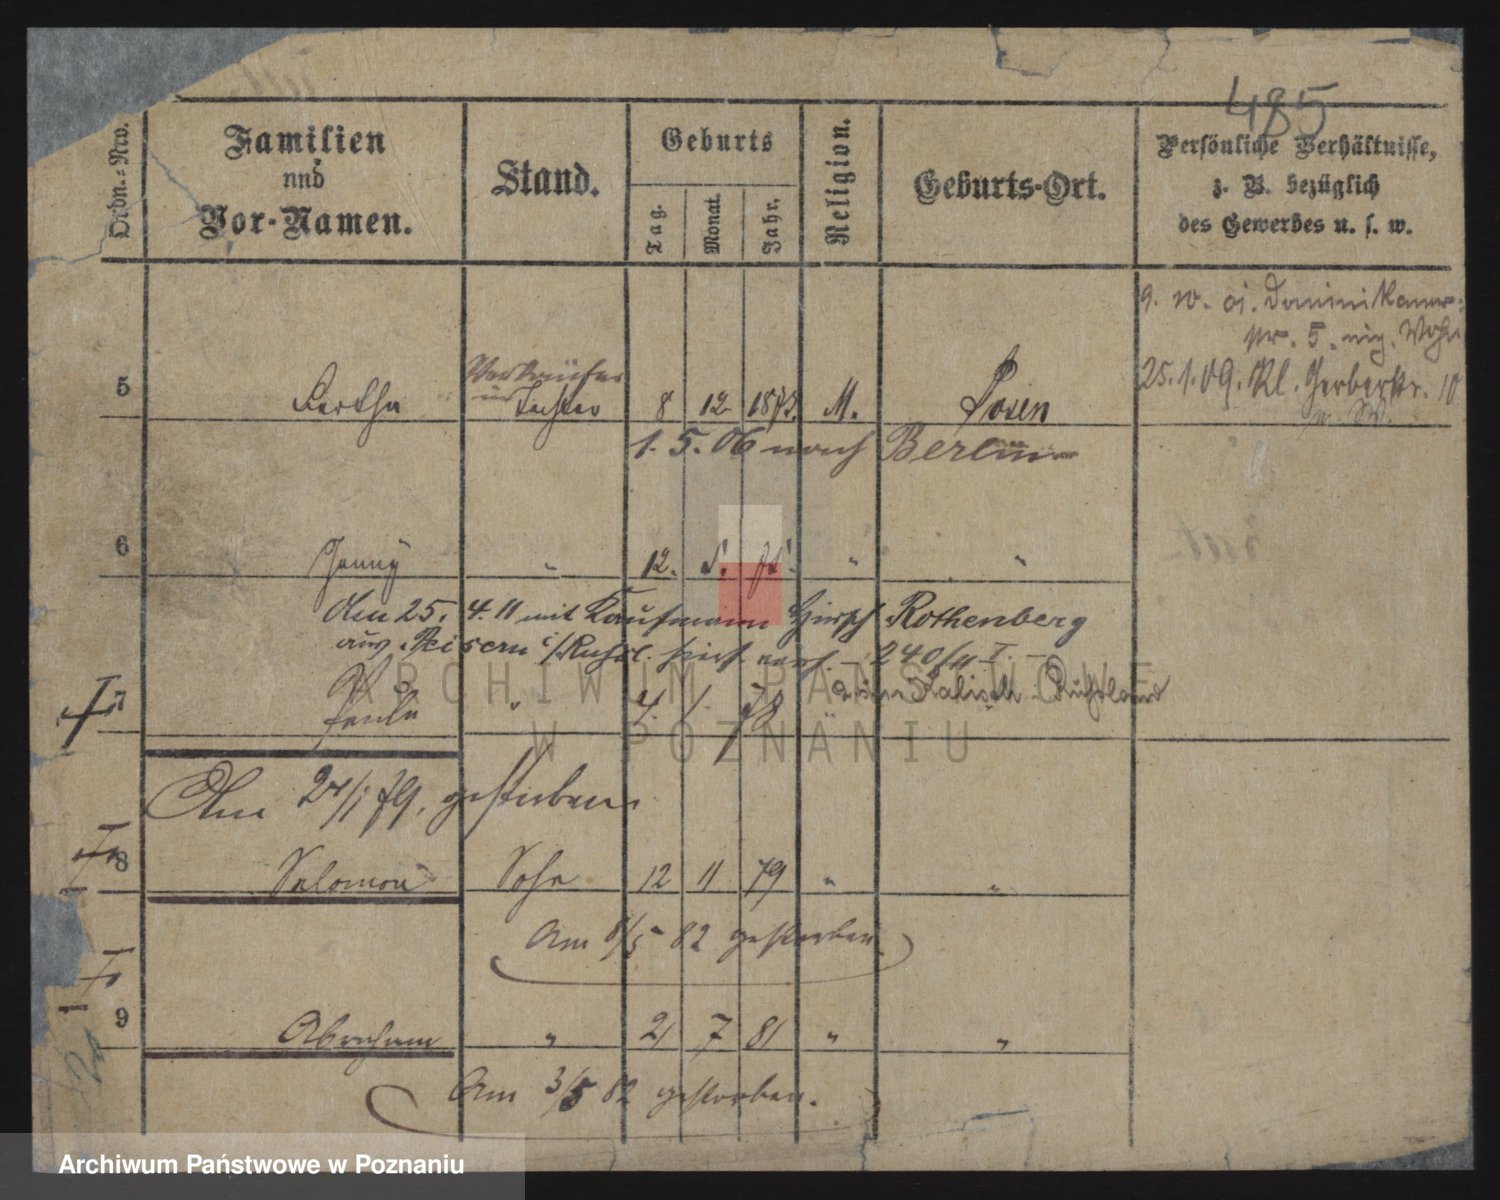 485
Ordn.-Nro.
Familien
und
Vor-Namen.
Stand.
Geburts
Tag.
Monat.
Jahr.
Religion.
Geburts-Ort.
Persönliche Verhältnisse,
z. B. bezüglich
des Gewerbes u. s. w.
Dominikaner-
str. 5.
25.1.09. Kl. Gerberstr. 10
5 Bertha Verkäuferin Tochter 8 12 1873. M. Posen
1. 5. 06 nach Berlin
6 Jenny " 12. 5. " "
Am 25. 4. 11 mit Kaufmann Hirsch Rothenberg
aus Peisern i/Russl. 240/11 I.
Kalisch Russland
7 Paula " 4. 1. 78 "
Am 24/1 79. gestorben
8 Salomon Sohn 12 11 79 " "
Am 8/5 82 gestorben
9 Abraham " 21 7 81 " "
Am 3/5 82 gestorben.
ARCHIWUM PAŃSTWOWE
W POZNANIU
Archiwum Państwowe w Poznaniu